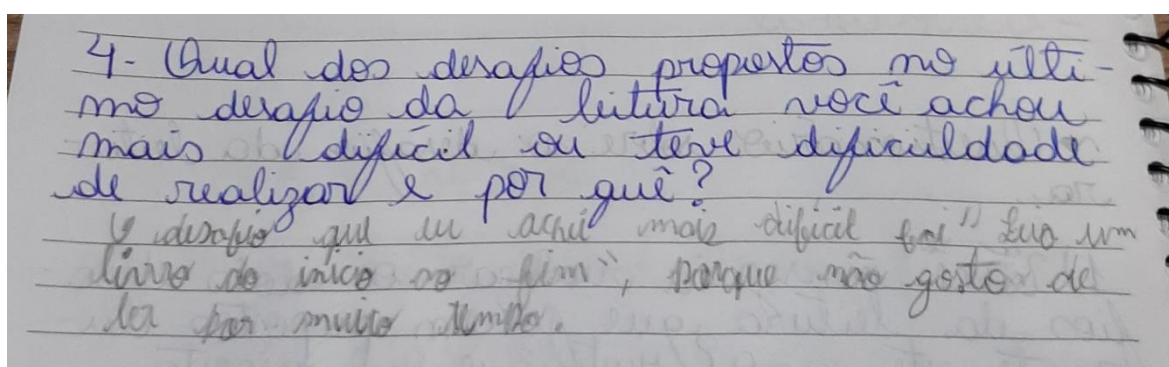 4- Qual dos desafios propostos no últi-
mo desafio da leitura você achou
mais difícil ou teve dificuldade
de realizar e por quê?
O desafio que eu achei mais difícil foi "Leia um
livro do início ao fim", porque não gosto de
ler por muito tempo.